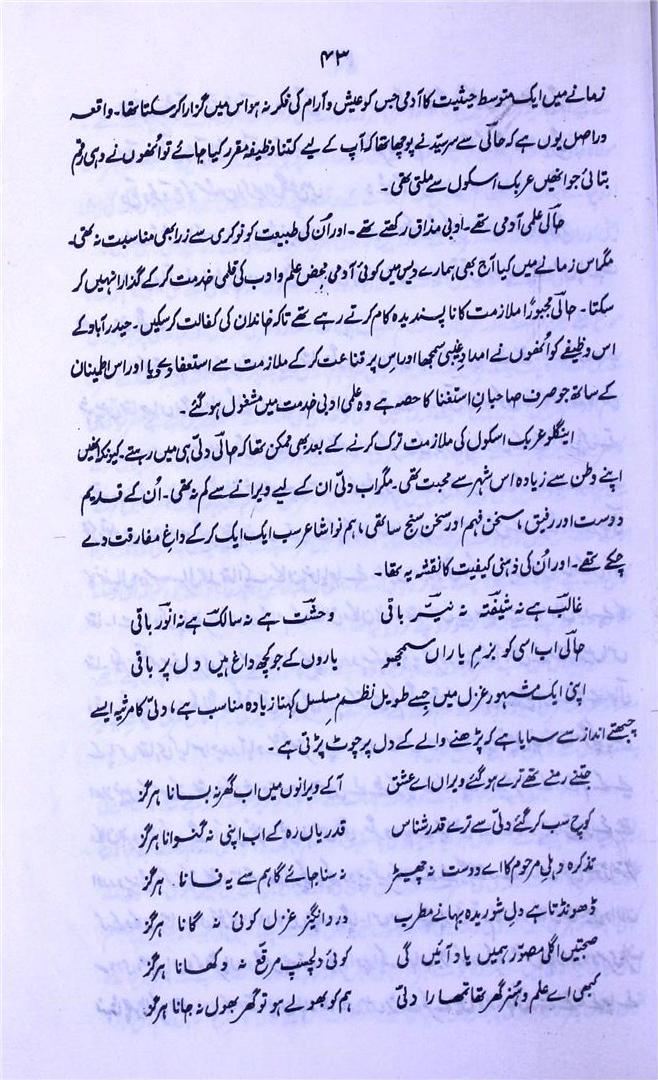 ۴۳
زمانے میں ایک متوسط حیثیت کا آدمی جس کو عیش و آرام کی فکر نہ ہو اس میں گزارا کر سکتا تھا۔ واقعہ
دراصل یوں ہے کہ حالیؔ سے سرسیّد نے پوچھا تھا کہ آپ کے لیے کتنا وظیفہ مقرر کیا جائے تو اُنھوں نے وہی رقم
بتائی جو انھیں عربک اسکول سے ملتی تھی۔
حالیؔ علمی آدمی تھے۔ ادبی مذاق رکھتے تھے۔ اور اُن کی طبیعت کو نوکری سے ذرا بھی مناسبت نہ تھی۔
مگر اس زمانے میں کیا آج بھی ہمارے دیس میں کوئی آدمی محض علم و ادب کی قلمی خدمت کر کے گذارا نہیں کر
سکتا۔ حالیؔ مجبوراً ملازمت کا ناپسندیدہ کام کرتے رہے تھے تاکہ خاندان کی کفالت کر سکیں۔ حیدرآباد کے
اس وظیفے کو اُنھوں نے امدادِ غیبی سمجھا اور اس پر قناعت کر کے ملازمت سے استعفا دے دیا اور اس اطمینان
کے ساتھ جو صرف صاحبانِ استغنا کا حصہ ہے وہ علمی ادبی خدمت میں مشغول ہو گئے۔
اینگلو عربک اسکول کی ملازمت ترک کرنے کے بعد بھی ممکن تھا کہ حالیؔ دلّی ہی میں رہتے۔ کیونکہ انھیں
اپنے وطن سے زیادہ اس شہر سے محبت تھی۔ مگر اب دلّی ان کے لیے ویرانے سے کم نہ تھی۔ اُن کے قدیم
دوست اور رفیق، سخن فہم اور سخن سنج ساتھی، ہم نوا شاعر سب ایک ایک کر کے داغِ مفارقت دے
چکے تھے۔ اور اُن کی ذہنی کیفیت کا نقشہ یہ تھا۔
غالبؔ ہے نہ شیفتہؔ نہ نیّرؔ باقی وحشتؔ ہے نہ سالکؔ ہے نہ انورؔ باقی
حالیؔ اب اسی کو بزمِ یاراں سمجھو یاروں کے جو کچھ داغ ہیں دل پر باقی
اپنی ایک مشہور غزل میں جسے طویل نظمِ مسلسل کہنا زیادہ مناسب ہے، دلّی کا مرثیہ ایسے
چبھتے انداز سے سنایا ہے کہ پڑھنے والے کے دل پر چوٹ پڑتی ہے۔
جتنے رمنے تھے ترے ہو گئے ویراں اے عشق آ کے ویرانوں میں اب گھر نہ بسانا ہرگز
کوچ سب کر گئے دلّی سے ترے قدر شناس قدر یاں رہ کے اب اپنی نہ گنوانا ہرگز
تذکرہ دہلیِ مرحوم کا اے دوست نہ چھیڑ نہ سنا جائے گا ہم سے یہ فسانا ہرگز
ڈھونڈتا ہے دلِ شوریدہ بہانے مطرب درد انگیز غزل کوئی نہ گانا ہرگز
صحبتیں اگلی مصوّر ہمیں یاد آئیں گی کوئی دلچسپ مرقع نہ دکھانا ہرگز
کبھی اے علم و ہنر گھر تھا تمھارا دلّی ہم کو بھولے ہو تو گھر بھول نہ جانا ہرگز